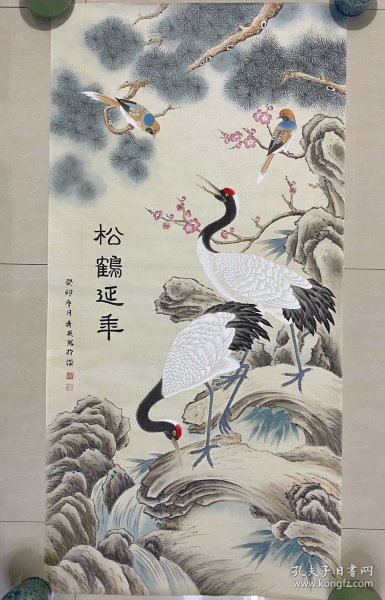 松鶴延年
癸卯冬月秀英寫於
孔夫子旧书网
www.kongfz.com